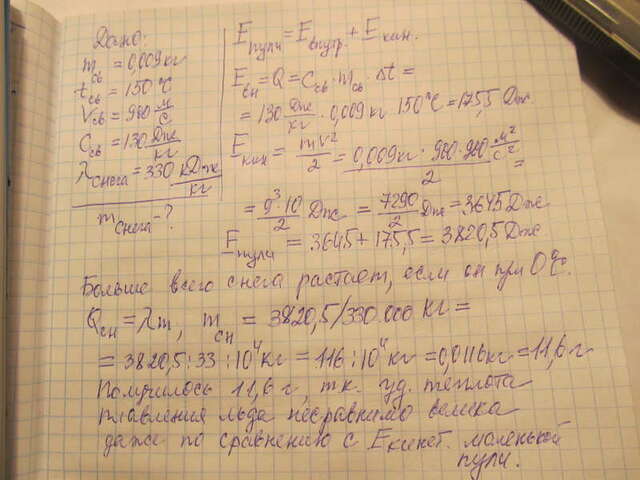 Дано:
m св = 0,009 кг
t св = 150 °C
V св = 900 м/с
C св = 130 Дж/кг
λ снега = 330 кДж/кг
m снега - ?
E пули = E внутр. + E кин.
E вн = Q = C св · m св · Δt =
= 130 Дж/кг · 0,009 кг · 150 °C = 175,5 Дж.
E кин = mV²/2 = 0,009 кг · 900 · 900 м²/с² / 2 =
= 9³·10/2 Дж = 7290/2 Дж = 3645 Дж
E пули = 3645 + 175,5 = 3820,5 Дж
Больше всего снега растает, если он при 0 °C.
Q сн = λm, m сн = 3820,5/330.000 кг =
= 3820,5 : 33 : 10⁴ кг = 116 : 10⁴ кг = 0,0116 кг = 11,6 г
Получилось 11,6 г, т.к. уд. теплота
плавления льда несравнимо велика
даже по сравнению с E кинет. маленькой
пули.